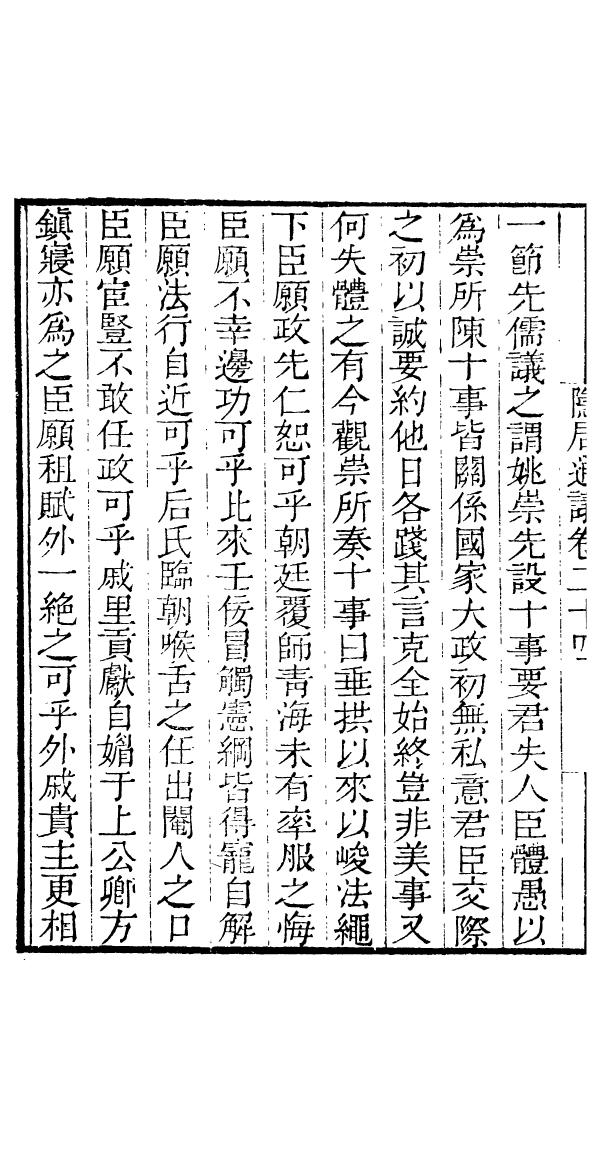 隱居通議卷二十四
一節先儒議之謂姚崇先設十事要君失人臣體愚以
爲崇所陳十事皆關係國家大政初無私意君臣交際
之初以誠要約他日各踐其言克全始終豈非美事又
何失體之有今觀崇所奏十事曰垂拱以來以峻法繩
下臣願政先仁恕可乎朝廷覆師青海未有率服之悔
臣願不幸邊功可乎比來壬佞冒觸憲綱皆得寵自解
臣願法行自近可乎后氏臨朝喉舌之任出閹人之口
臣願宦豎不敢任政可乎戚里貢獻自媚于上公卿方
鎭寖亦爲之臣願租賦外一絶之可乎外戚貴主更相